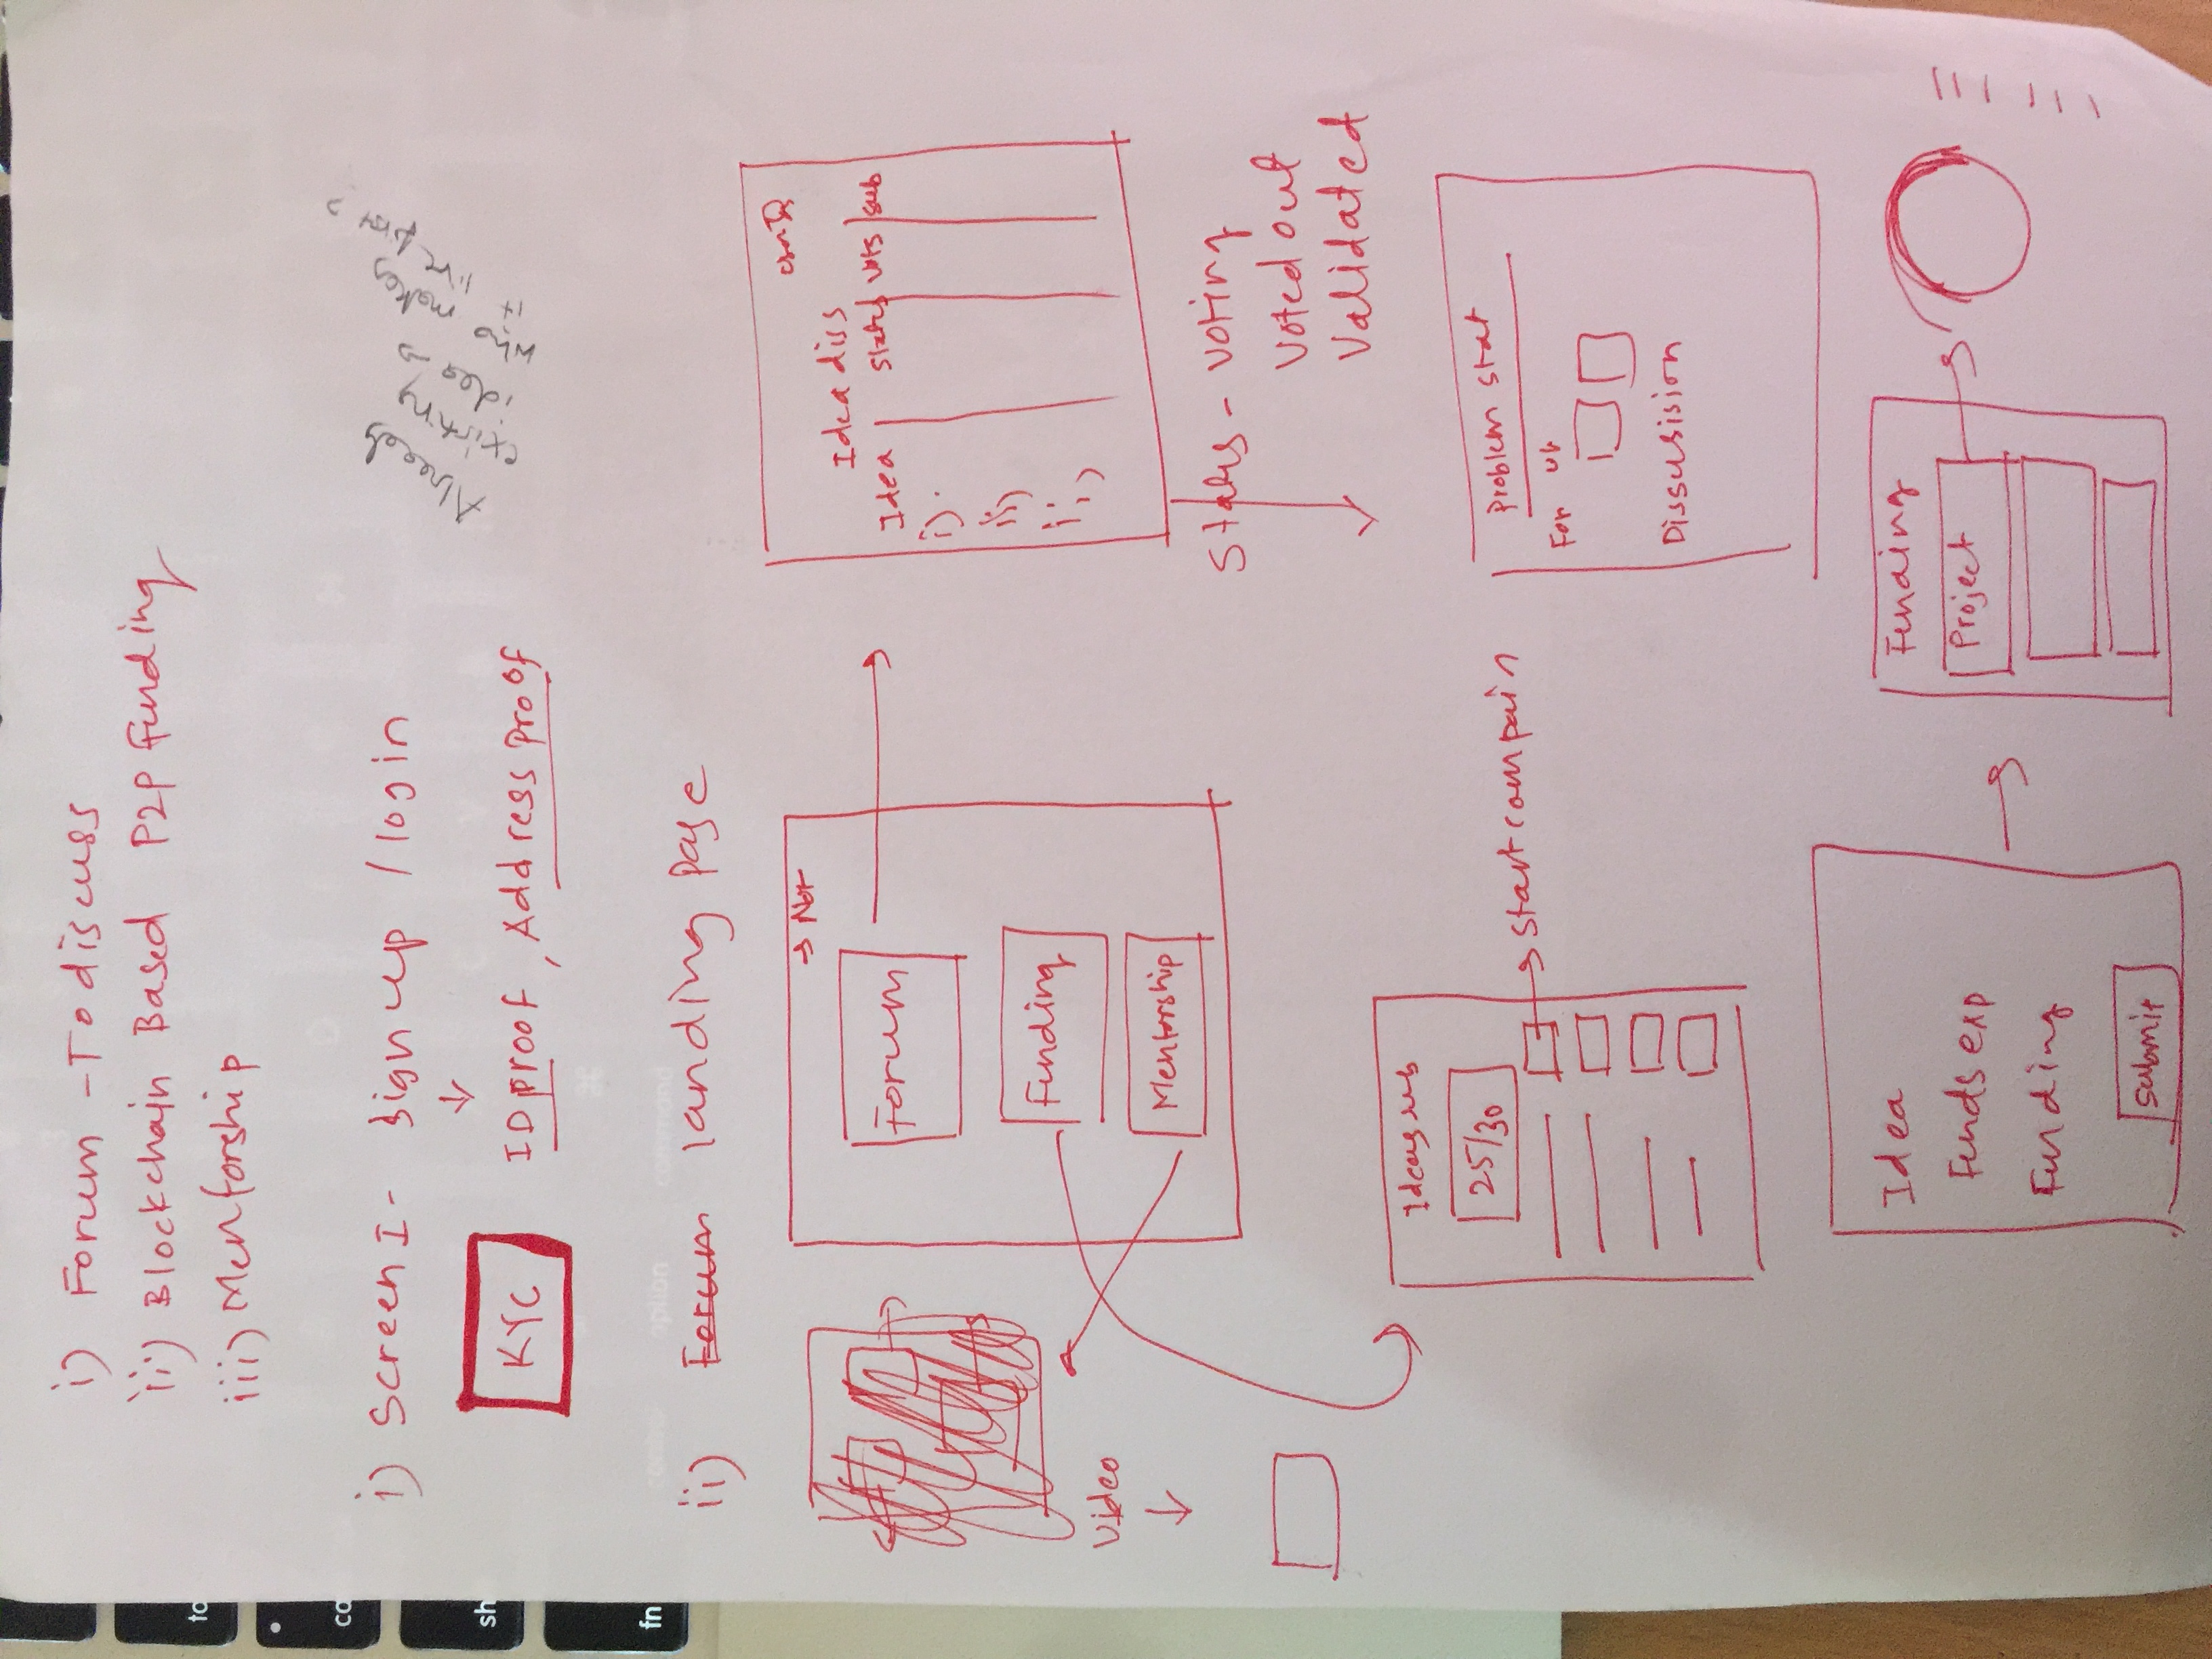 i) Forum - To discuss
ii) Blockchain Based P2P Funding
iii) Mentorship
i) Screen I - Sign up / login
KYC
ID proof, Address proof
Already
existing
idea →
who makes
it live first?
ii) Forum landing page
→ Not
Forum
Funding
Mentorship
Video
Idea diss
Idea
Status
Vots
sub
Status - Voting
Voted out
Validated
Ideas sub
25/30
→ Start compain
Problem stat
For
Dissusision
Idea
Funds exp
Funding
Submit
Funding
Project
to
sh
fn
control
option
command